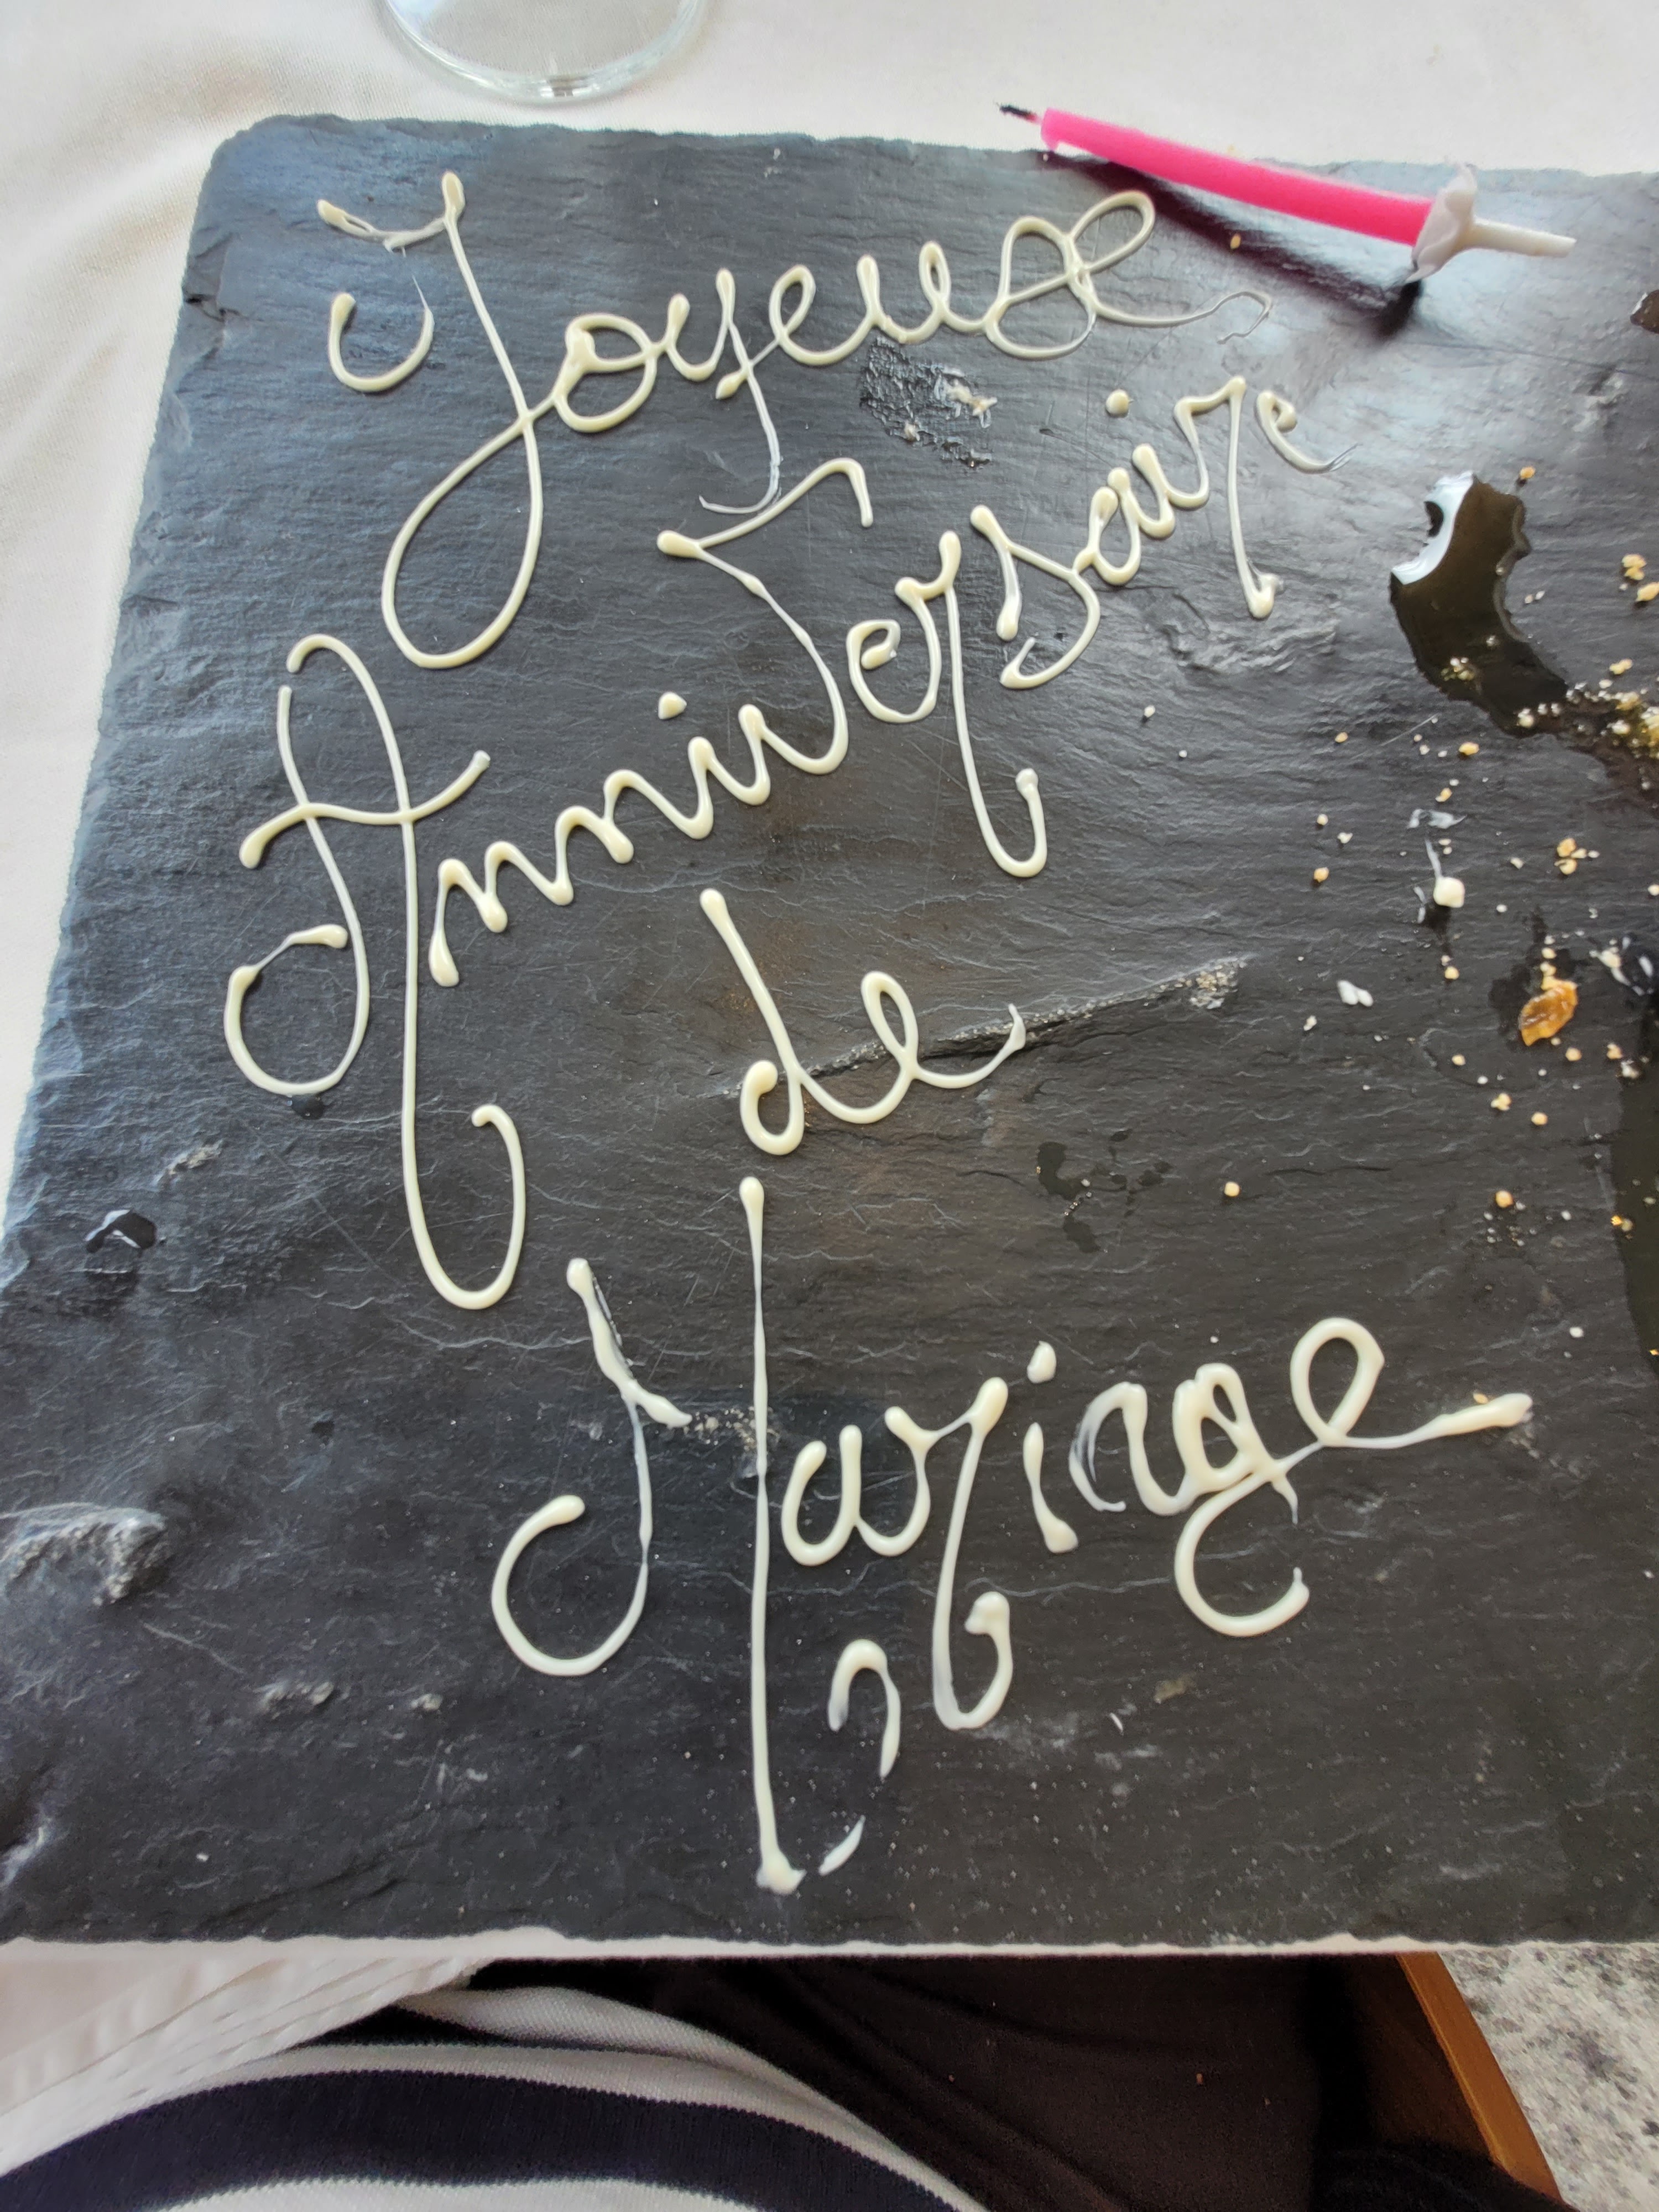 Joyeuse
Anniversaire
de
Mariage